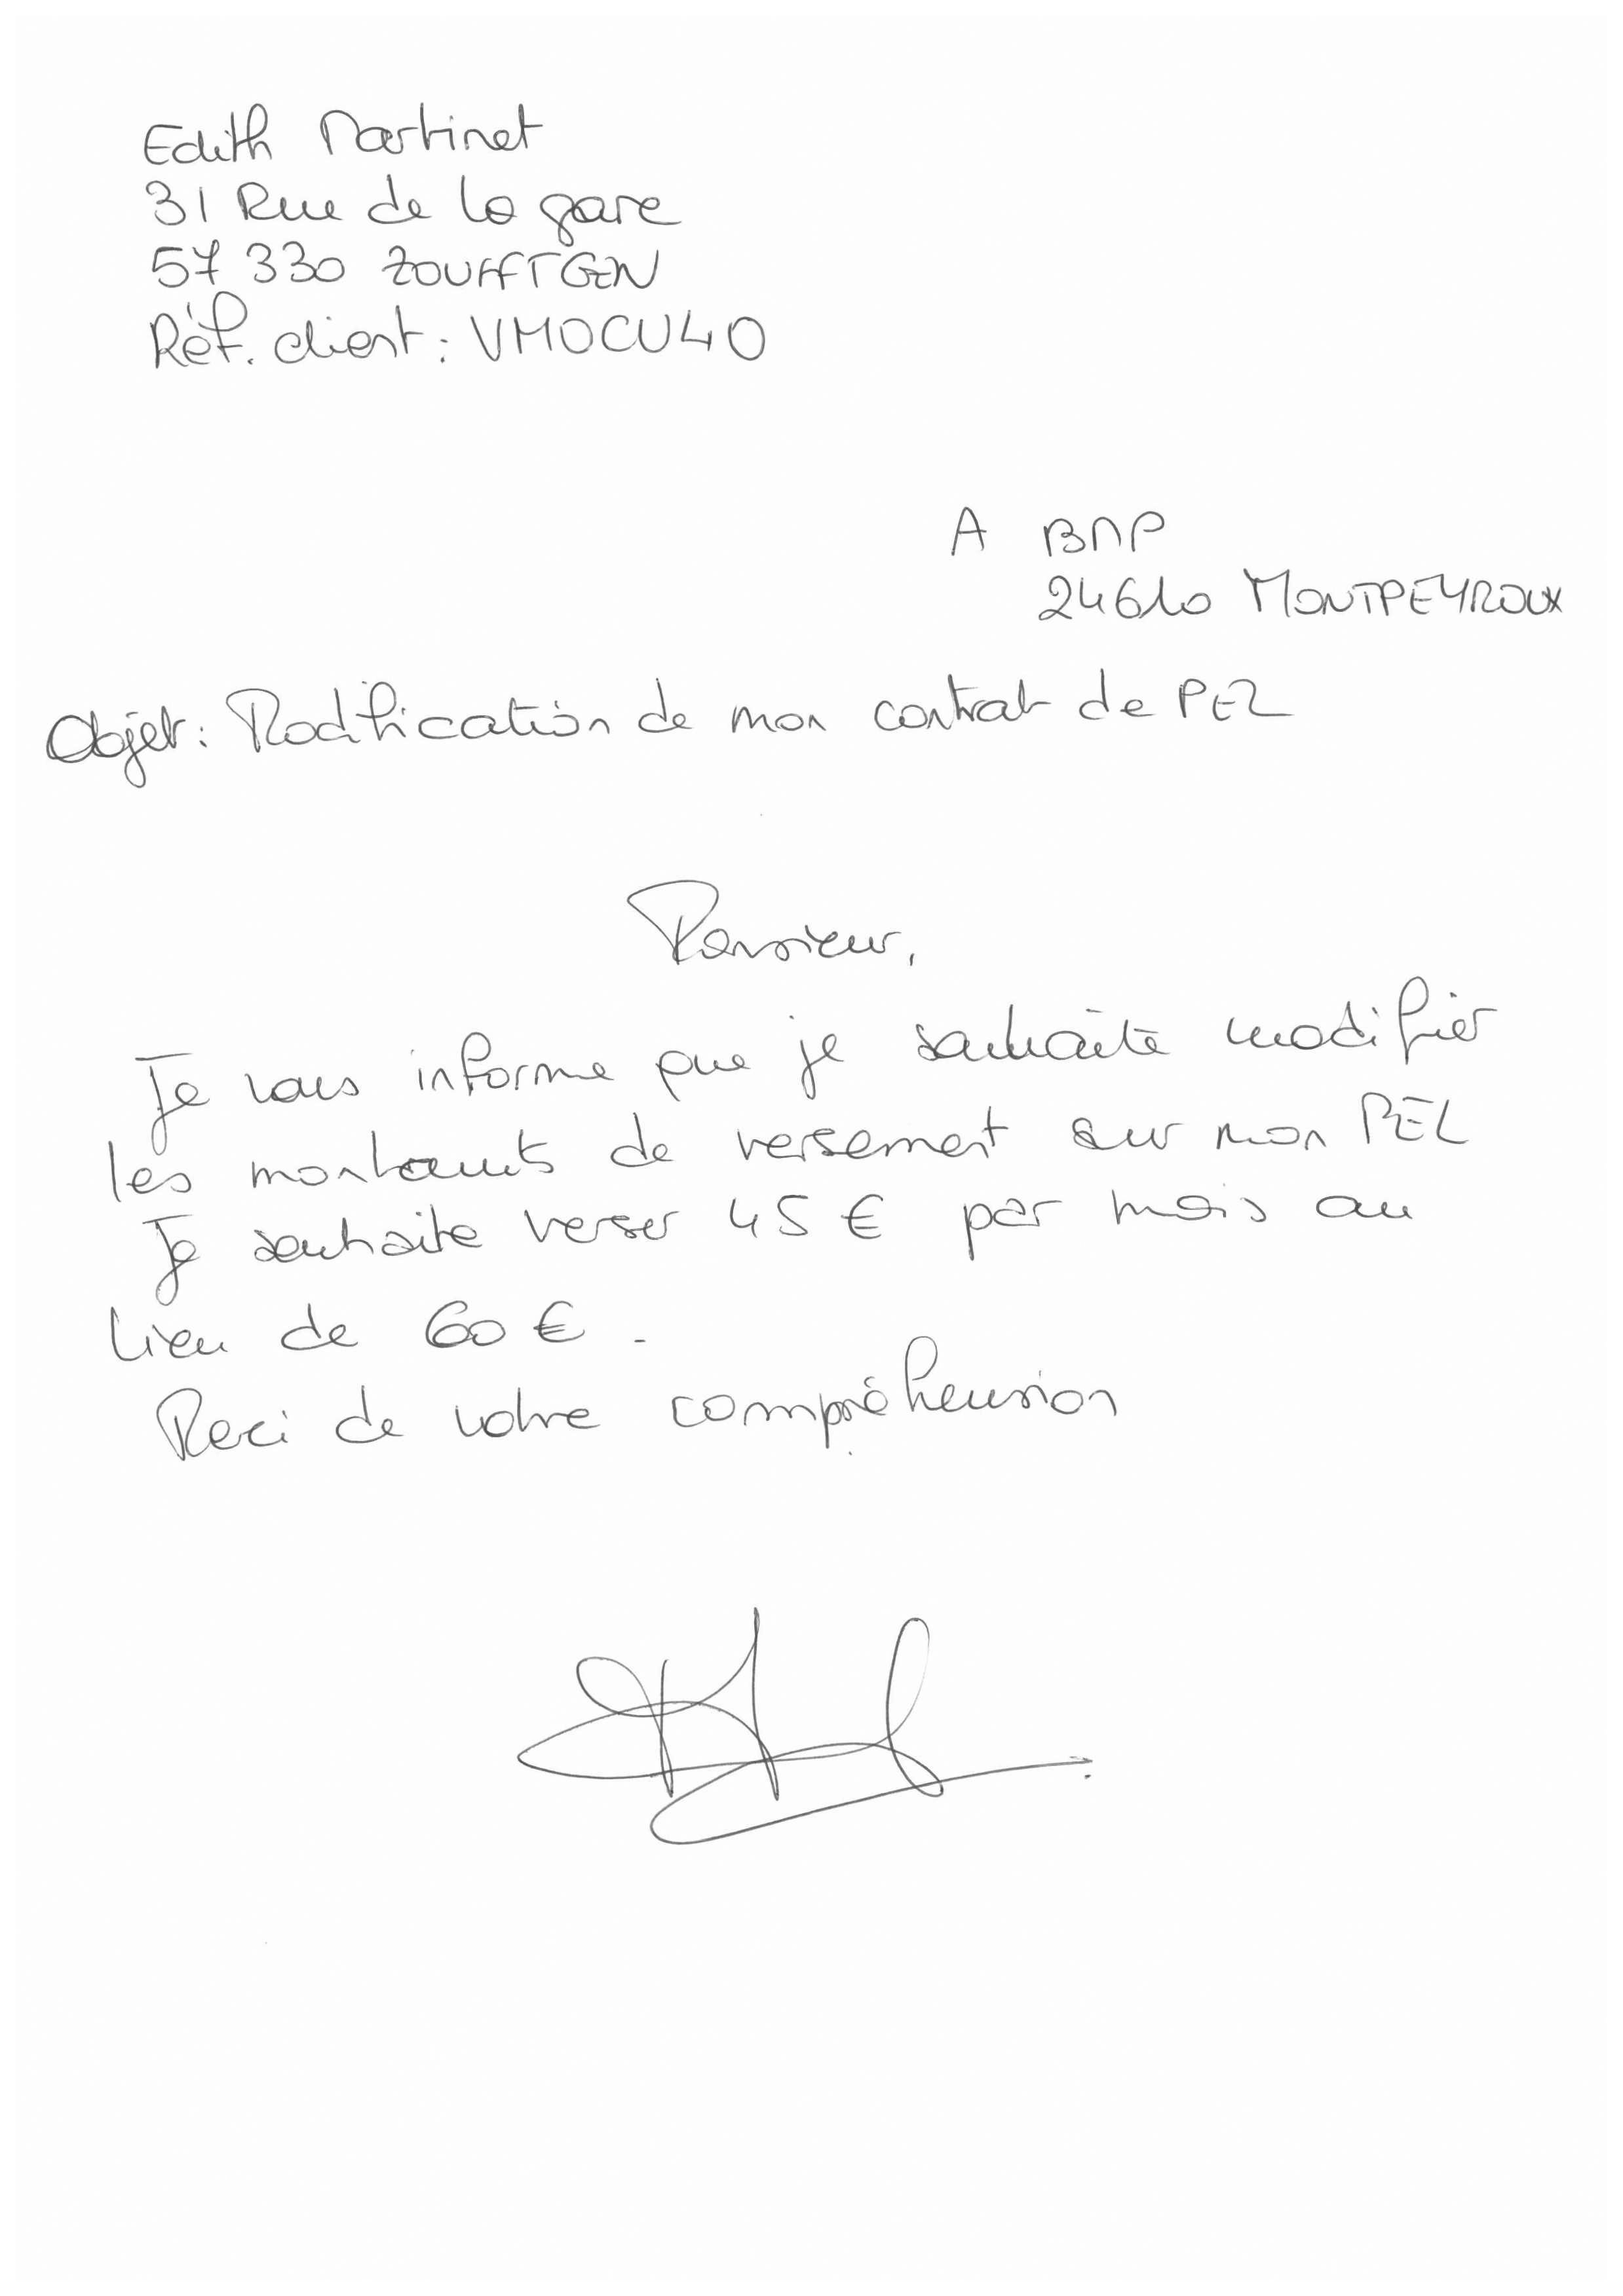 Edith Martinet
31 Rue de la gare
57 330 ZOUFFTGEN
Réf. client : VMOCU40
A BNP
24610 MONTPEYROUX
Objet : Modification de mon contrat de PEL
Monsieur,
Je vous informe que je souhaite modifier
les montants de versement sur mon PEL
Je souhaite verser 45 € par mois au
lieu de 60 € .
Merci de votre compréhension